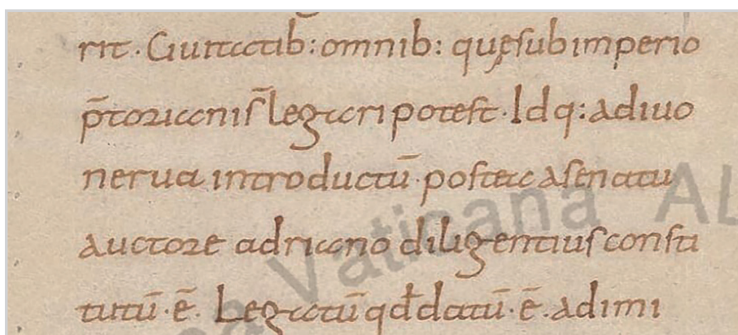 rit. Ciuitatib: omnib: quę sub imperio
p̄ to
r. iani s̄ legari potest. Idq: a diuo
nerua introductū. postea a senatu
auctore adriano diligentius consti
tutū. ē. Legatū qd̄ datū. ē. adimi